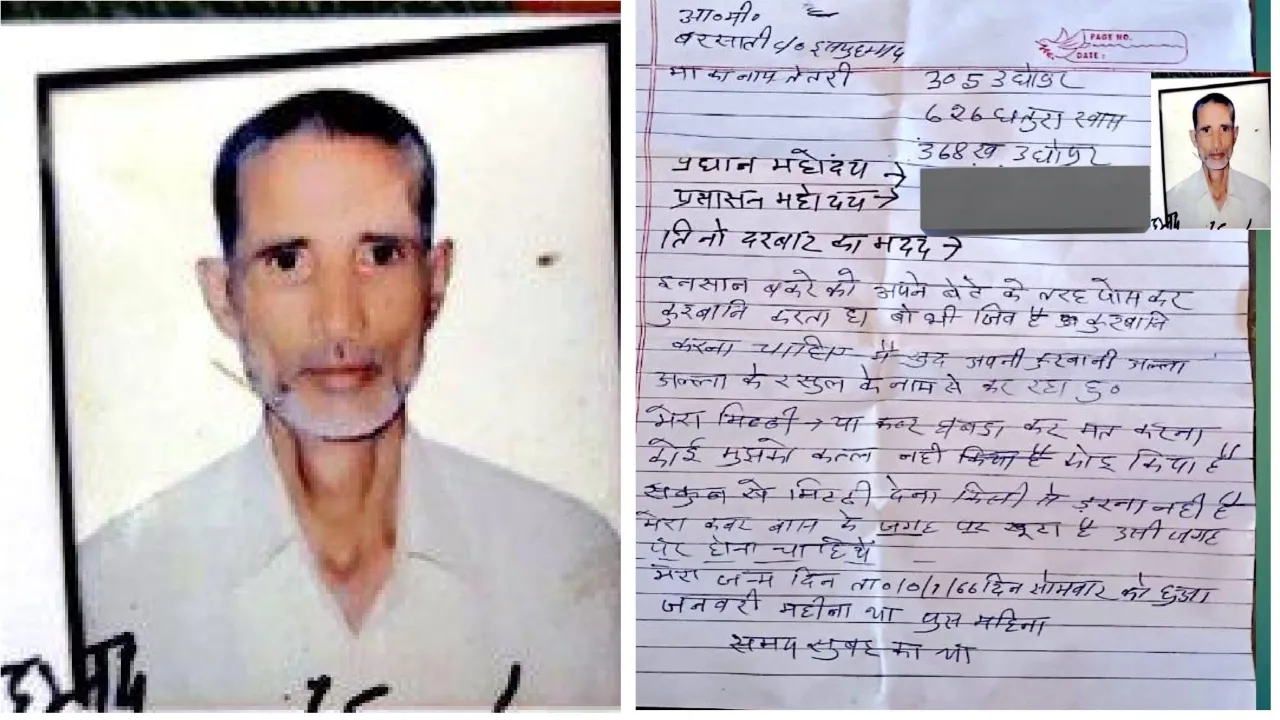 आ०मी०
बरसाती
PAGE NO.
DATE :
मा का नाम तेतरी
305 उधोपुर
626 धतुरा खास
368 ख उधोपुर
प्रधान महोदय →
प्रसासन महोदय →
तिनो दरबार का मदद →
इनसान बकरे को अपने बेटे के तरह पोस कर
कुरबानि करता है बो भी जिव है कुरबानि
करना चाहिए मै खुद अपनी कुरबानी अल्ला
अल्ला के रसुल के नाम से कर रहा हु०
मेरा मिट्टी → या कबर घबडा कर मत करना
कोई मुझको कत्ल नही किया है
सकुन से मिट्टी देना किसी से डरना नही है
मेरा कबर बास के जगह पर खूटा है उसी जगह
पर होना चाहिये
मेरा जन्म दिन ता० दिन सोमवार को हुआ
जनवरी महीना था पुस महिना
समय सुबह का था